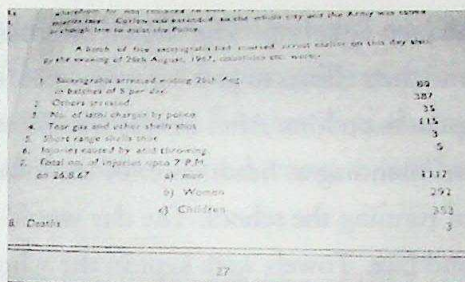 martial law. Curfew was extended to the whole city and the Army was called
to assist the Police.
A batch of five satyagrahis had courted arrest earlier on this day also.
By the evening of 26th August, 1967, casualties etc. were:-
1. Satyagrahis arrested ending 26th Aug. 80
in batches of 5 per day.
2. Others arrested 387
3. No. of lathi charges by police 35
4. Tear gas and other shells shot 115
5. Short range shells shot 3
6. Injuries caused by acid throwing 5
7. Total no. of injuries upto 7 P.M.
on 26.8.67 a) men 1112
b) Women 292
c) Children 353
8. Deaths 3
27